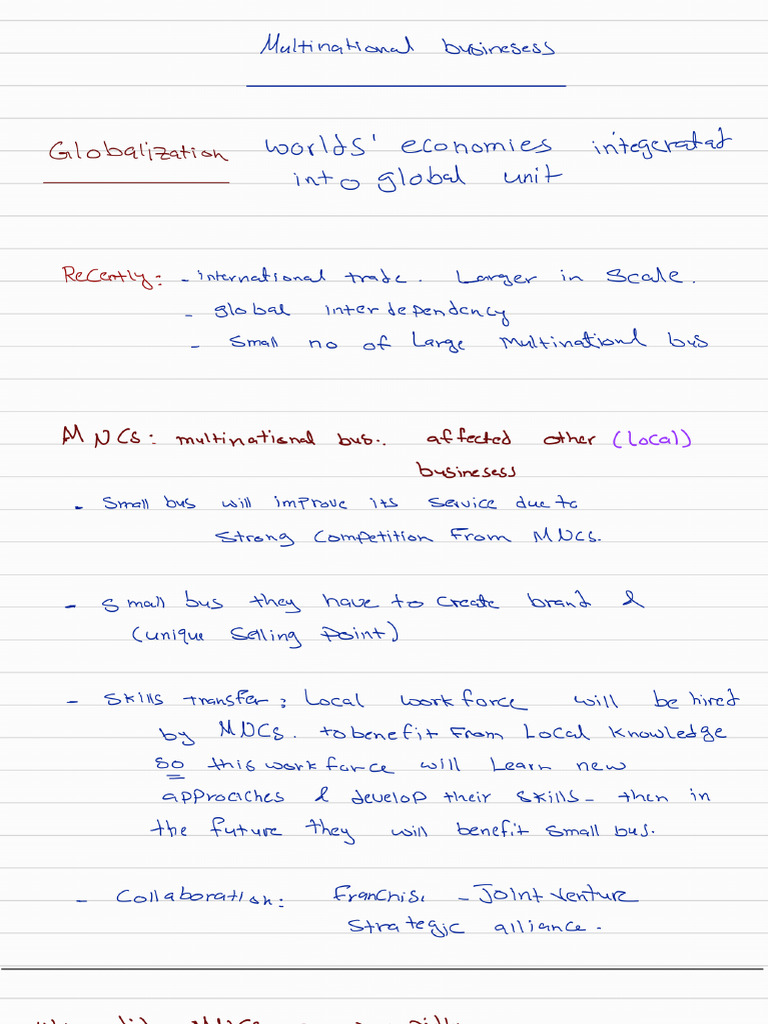 Multinational businesess
Globalization worlds' economies integeratat
into global unit
Recently: - international trade. Larger in scale.
- global interdependency
- small no of large multinationl bus
MNCS: multinational bus.. affected other (local)
businesess
- Small bus will improve its service due to
strong competition from MNCs.
- Small bus they have to create brand &
(unique selling point)
- Skills transfer: Local workforce will be hired
by MNCS. to benefit from Local knowledge
so this workforce will learn new
approaches & develop their skills - then in
the future they will benefit small bus.
- Collaboration: Franchise - Joint venture
strategic alliance.
MNCS